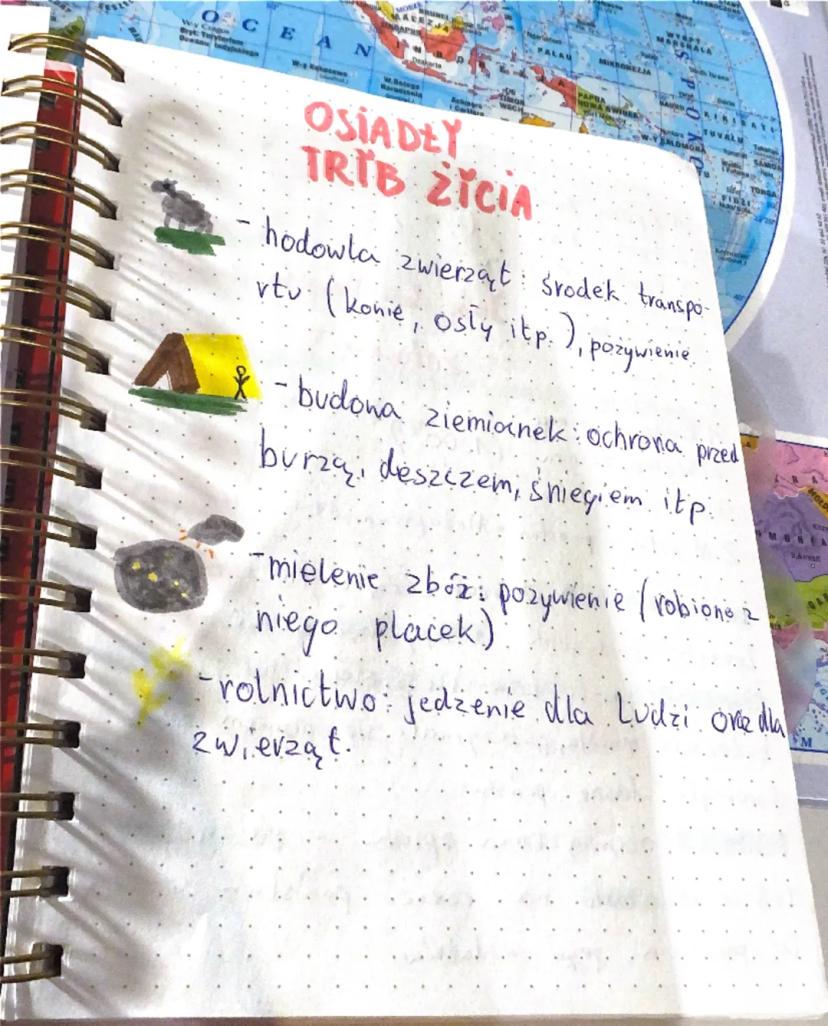 OCEAN
PALAU
MIKRONEZJA
OSIADŁY
TRYB ŻYCIA
- hodowla zwierząt: środek transpo-
rtu (konie, osły itp.), pożywienie
- budowa ziemianek: ochrona przed
burzą, deszczem, śniegiem itp.
- mielenie zbóż: pożywienie (robiono z
niego placek)
- rolnictwo: jedzenie dla ludzi oraz dla
zwierząt.